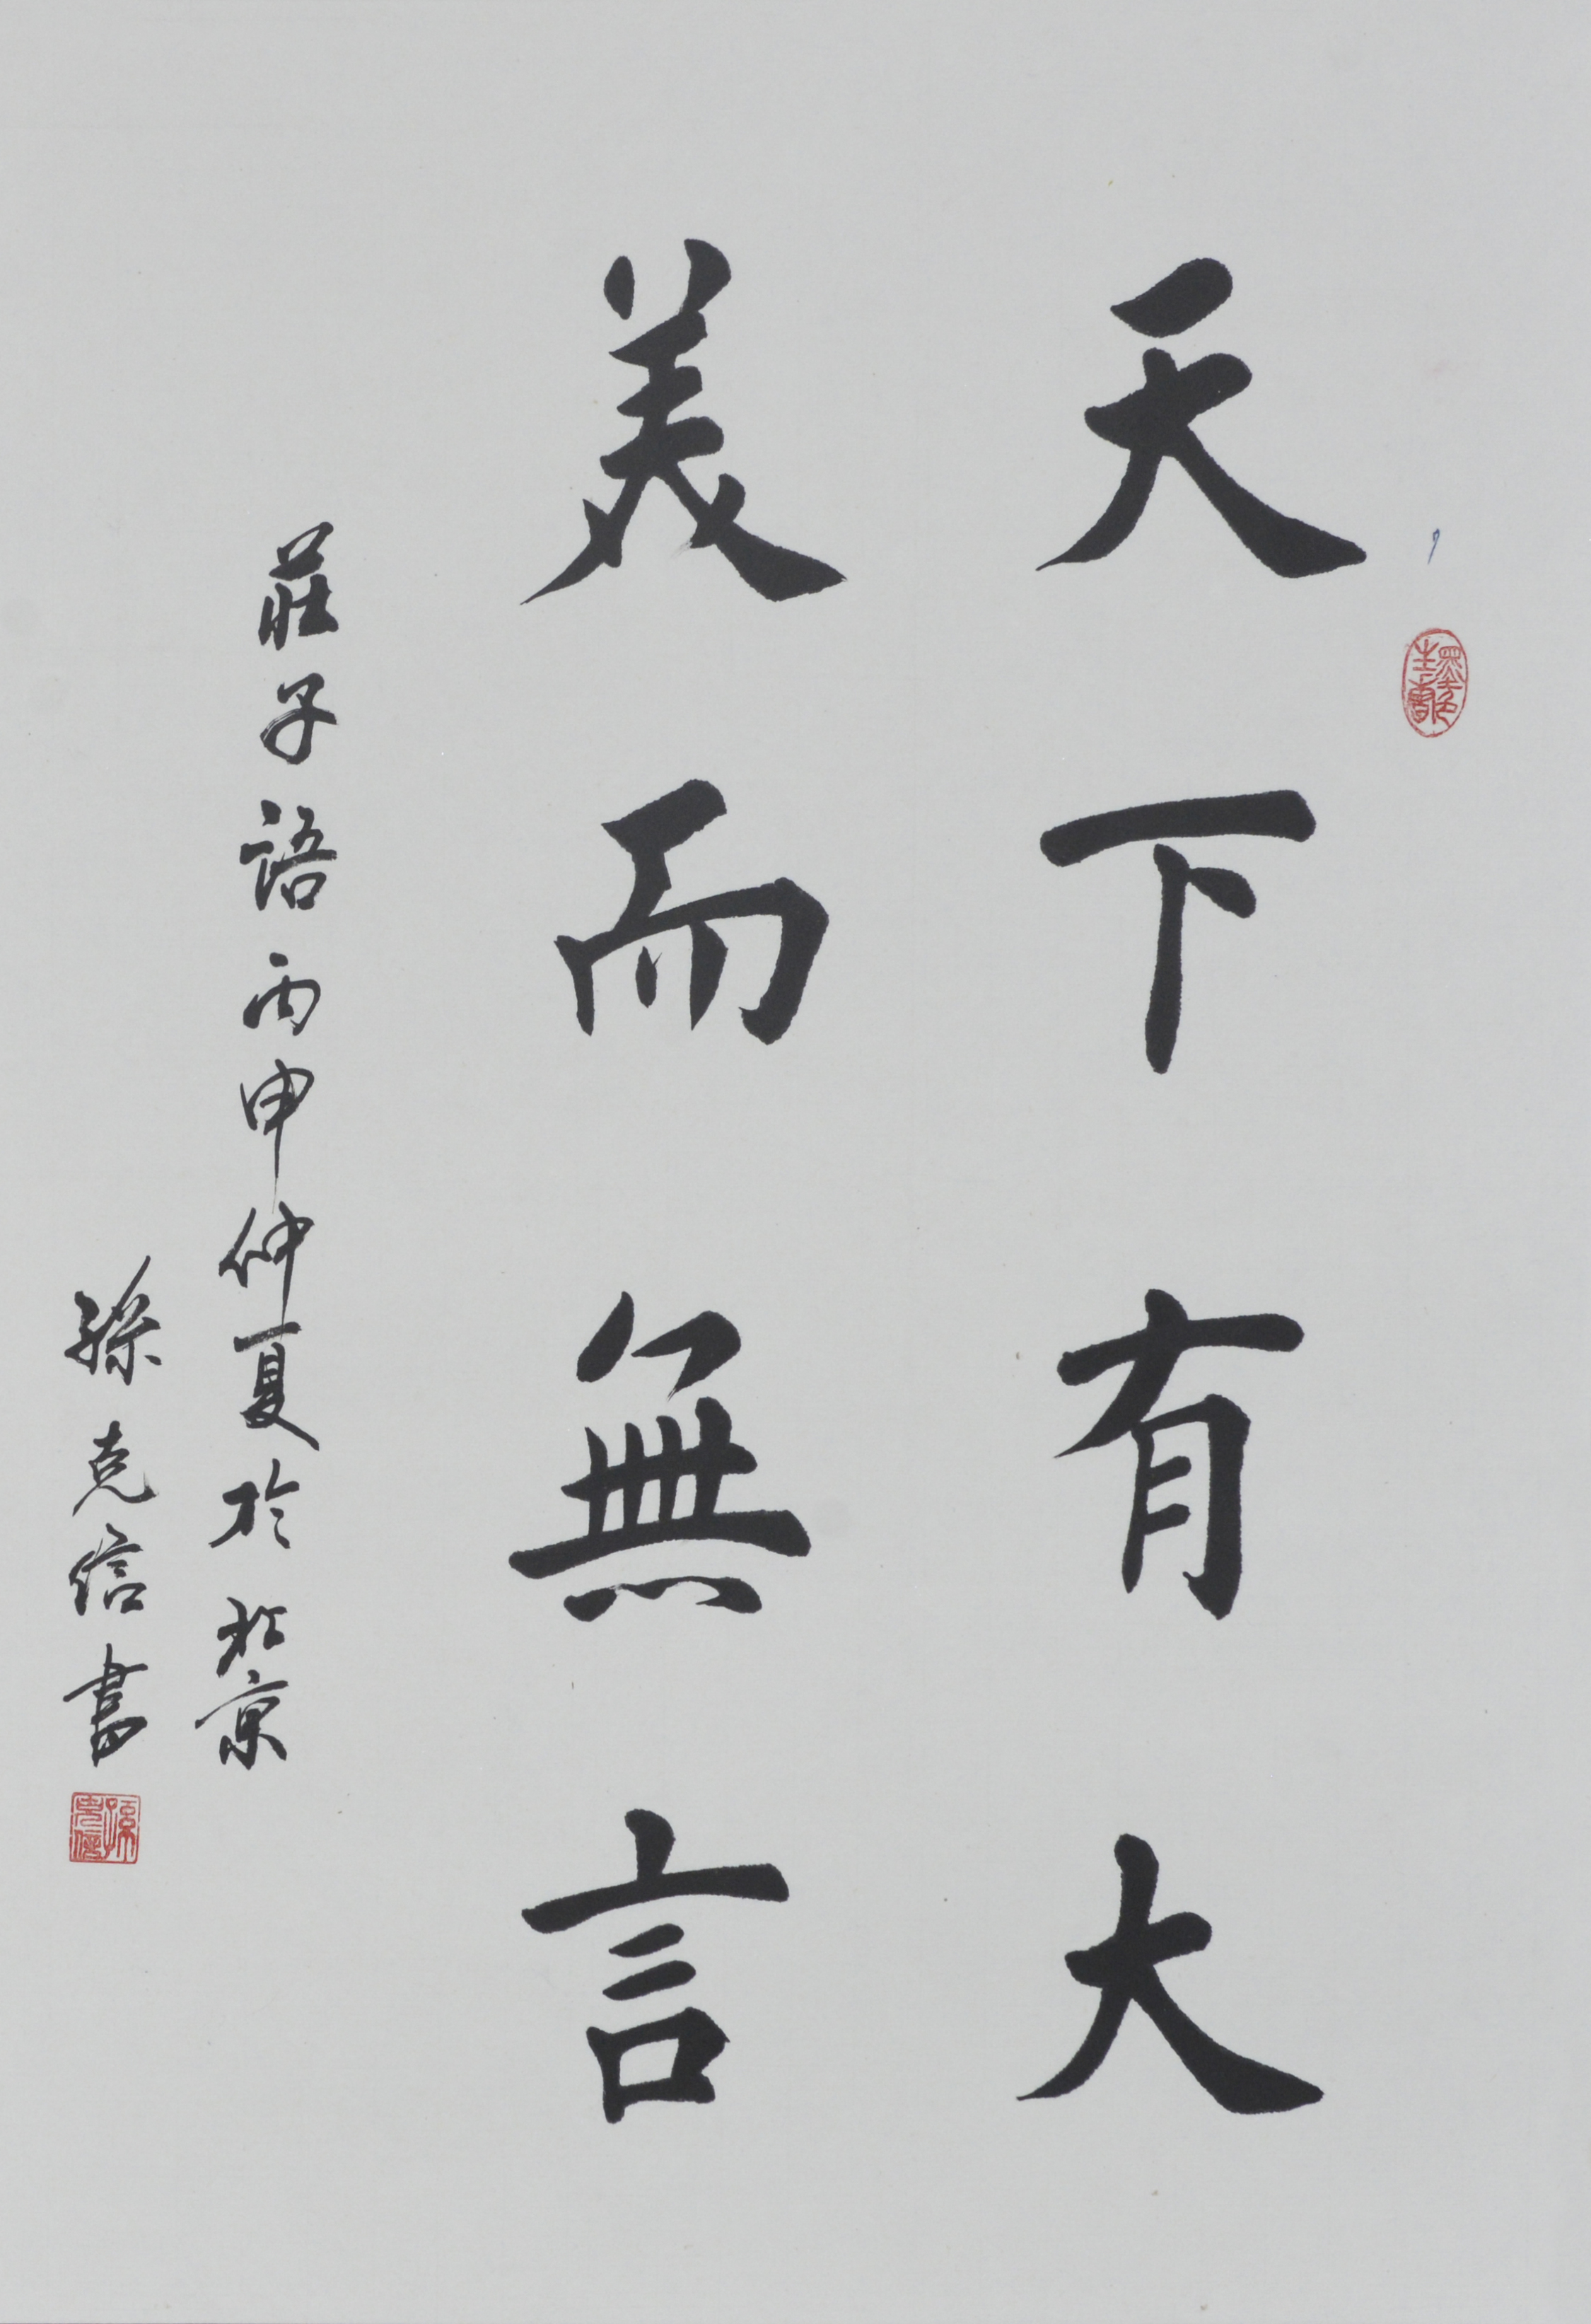 天下有大
美而無言
莊子語丙申仲夏於北京
孫克信書
孫克信